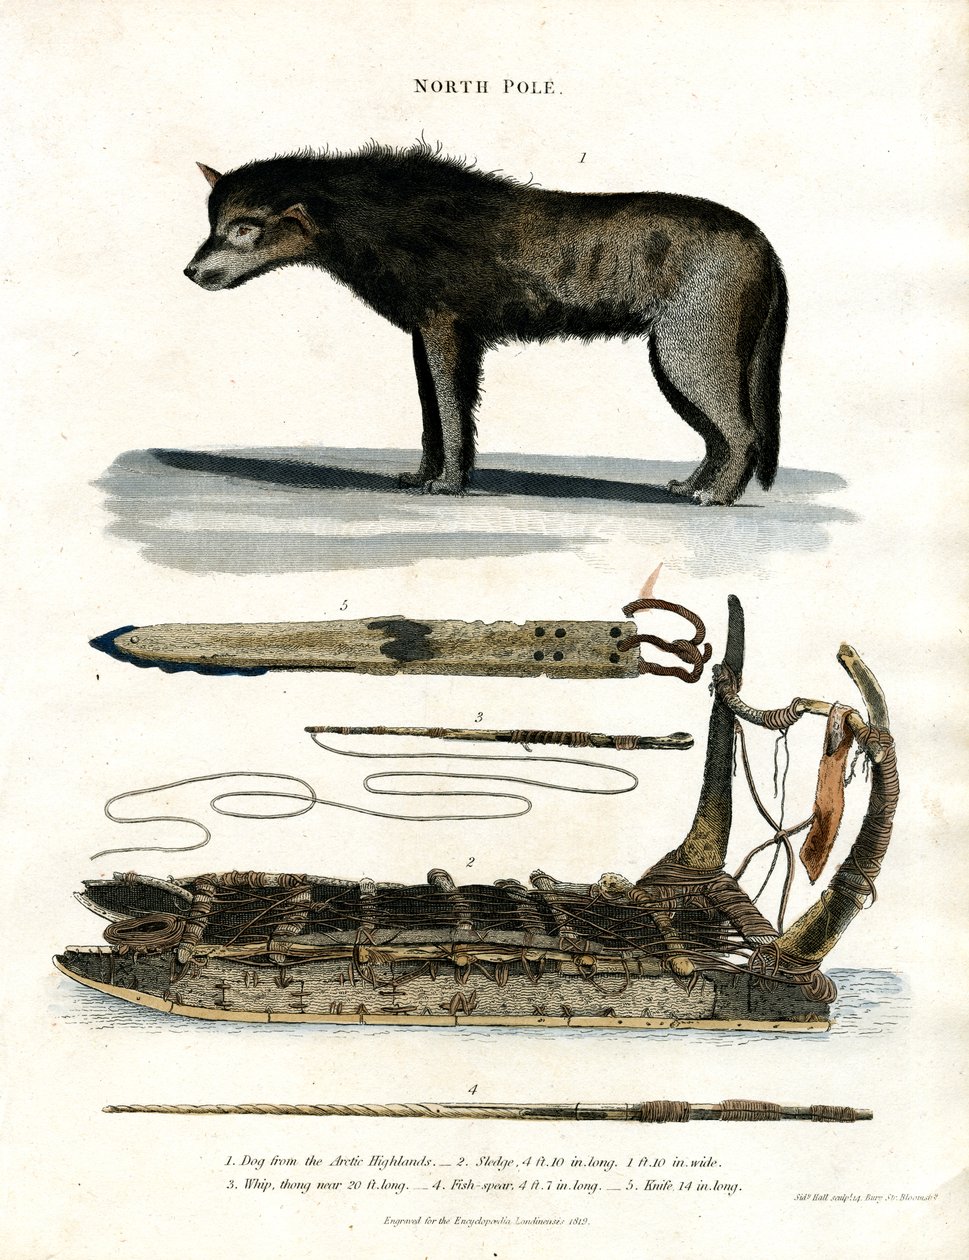 NORTH POLE.
1
5
3
2
4
1. Dog from the Arctic Highlands. — 2. Sledge, 4 ft. 10 in. long. 1 ft. 10 in. wide.
3. Whip, thong near 20 ft. long. — 4. Fish-spear, 4 ft. 7 in. long. — 5. Knife, 14 in. long.
Sidy. Hall sculpt. 14, Bury Str. Bloomsby.
Engraved for the Encyclopædia Londinensis 1819.